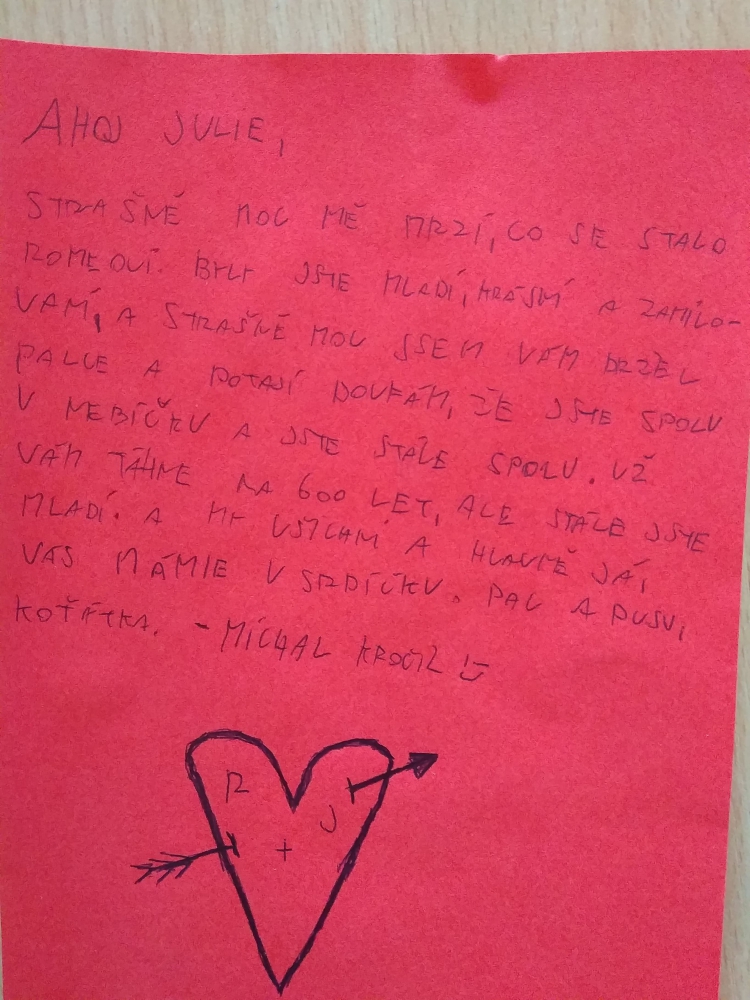 AHOJ JULIE,
STRAŠNĚ MOC MĚ MRZÍ, CO SE STALO
ROMEOVI. BYLY JSTE MLADÍ, KRÁSNÍ A ZAMILO-
VANÍ, A STRAŠNĚ MOC JSEM VÁM DRŽEL
PALCE A POTAJÍ DOUFÁM, ŽE JSTE SPOLU
V NEBÍČKU A JSTE STÁLE SPOLU. UŽ
VÁM TÁHNE NA 600 LET, ALE STÁLE JSTE
MLADÍ. A MY VŠICHNI A HLAVNĚ JÁ,
VÁS MÁME V SRDÍČKU. PAC A PUSU,
KOŤÁTKA. - MICHAL
R
J
+